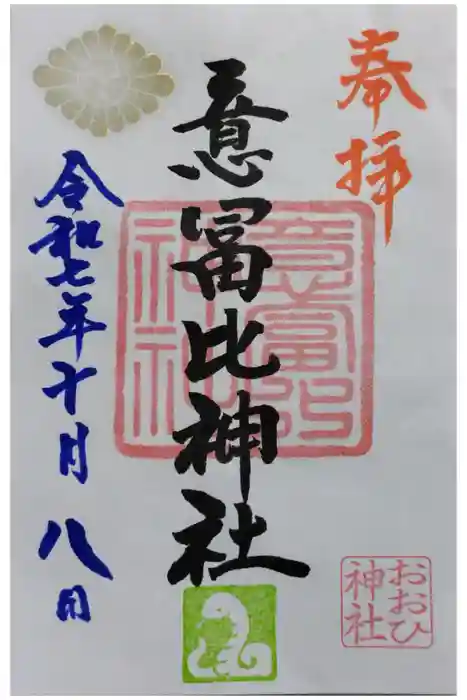 奉拝
意冨比神社
意富比神社
令和七年十月八日
おおひ
神社